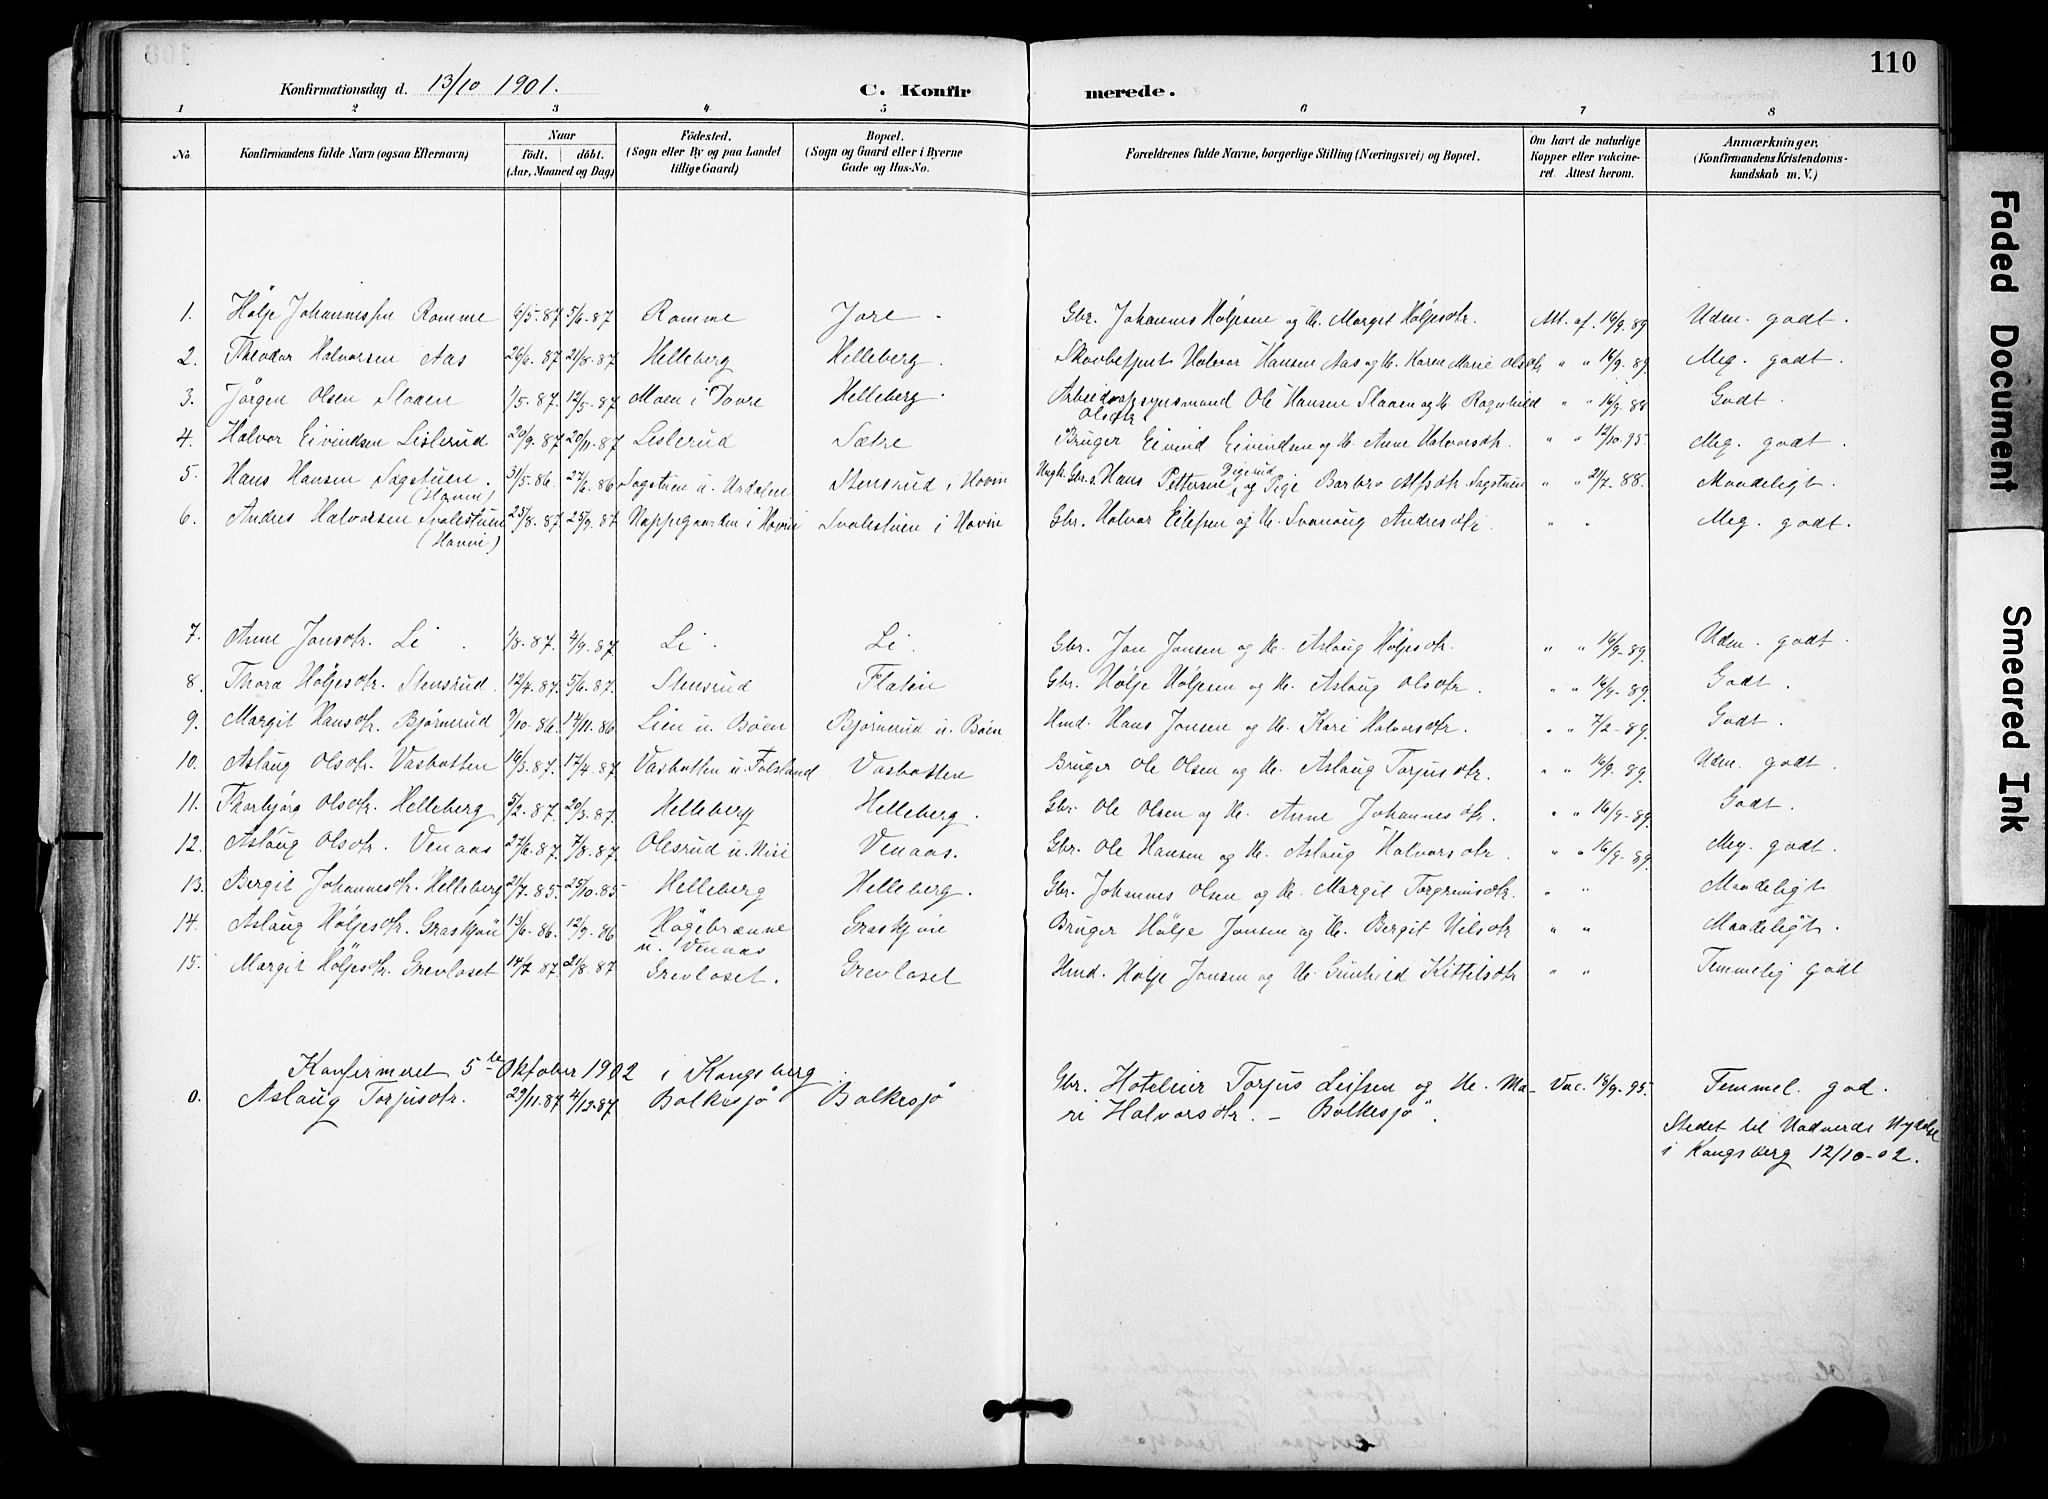 110
Konfirmationsdag d. 13/10 1901.
C. Konfirmerede.
1 2 3 4 5 6 7 8
No. Konfirmandens fulde Navn (ogsaa Efternavn) Naar födt. döbt. (Aar, Maaned og Dag) Födested. (Sogn eller By og paa Landet tillige Gaard) Bopæl. (Sogn og Gaard eller i Byerne Gade og Hus-No. Forældrenes fulde Navne, borgerlige Stilling (Næringsvei) og Bopæl. Om havt de naturlige Kopper eller vakcineret. Attest herom. Anmærkninger. (Konfirmandens Kristendomskundskab m. V.)
1. Hölje Johannessen Romme 6/5-87 5/6-87 Romme Jore Gbr. Johannes Höljesen og H. Margit Höljesdtr. Att. af 16/9-89 Udm. godt.
2. Theodor Halvorsen Aas 26/6-87 21/8-87 Helleberg Helleberg. Skovbetjent Halvor Hansen Aas og H. Karen Marie Olsdtr " " 16/9-89 Meg. godt
3. Jörgen Olsen Slaaen 1/5-87 12/5-87 Moen i Dovre Helleberg. Arbeidsopsynsmand Ole Hansen Slaaen og H. Ragnhild Olsdtr " " 16/9-88 Godt.
4. Halvor Eivindsen Lislerud 20/9-87 20/11-87 Lislerud Sætre Bruger Eivind Eivindsen og H. Anne Halvorsdtr. " " 12/10-95 Meg. godt
5. Hans Hansen Sagstuen. (Hovin) 31/5-86 27/6-86 Sagstuen u. Urdalen Stensrud i Hovin Ungk. Gbr.s. Hans Pettersen Digerud og Pige Barbro Alfsdtr. Sagstuen " " 21/7-88. Maadeligt.
6. Andres Halvorsen Svalestuen (Hovin) 25/8-87 25/9-87 Nappegaarden i Hovin Svalestuen i Hovin Gbr. Halvor Eilefsen og H. Svanaug Andresdtr. " " Meg. godt.
7. Anne Jonsdtr. Li 1/8-87. 4/9-87 Li. Li. Gbr. Jon Jonsen og H. Aslaug Höljesdtr. " " 16/9-89. Udm. godt.
8. Thora Höljesdtr. Stensrud. 12/4-87. 5/6-87. Stensrud Flaten Gbr. Hölje Höljesen og H. Aslaug Olsdtr. " " 16/9-89. Godt.
9. Margit Hansdtr. Björnerud 9/10-86 14/11-86 Lien u. Böen Björnerud u. Böen Hmd. Hans Jonsen og H. Kari Halvorsdtr. " " 7/2-89. Godt.
10. Aslaug Olsdtr. Vasbotten 16/3-87. 17/4-87 Vasbotten u. Folsland Vasbotten Bruger Ole Olsen og H. Aslaug Torjusdtr. " " 16/9-89. Udm. godt.
11. Thorbjörg Olsdtr. Helleberg 5/2-87. 20/3-87. Helleberg Helleberg. Gbr. Ole Olsen og H. Anne Johannesdtr. " " 16/9-89. Godt.
12. Aslaug Olsdtr. Venaas 27/6-87. 7/8-87. Olesrud u. Nisi Venaas. Gbr. Ole Hansen og H. Aslaug Halvorsdtr. " " 16/9-89 Meg. godt.
13. Bergit Johannesdtr. Helleberg 21/7-85 25/10-85 Helleberg Helleberg. Gbr. Johannes Olsen og H. Margit Torgrimsdtr. " " Maadeligt
14. Aslaug Höljesdtr. Graskjöu 13/6-86. 12/9-86 Högebrænne u. Venaas Bruger Hölje Jonsen og H. Bergit Nilsdtr " " Maadeligt.
15. Margit Höljesdtr. Grevloset 14/7-87. 21/8-87 Grevloset. Grevloset Hmd. Hölje Jonsen og H. Gunhild Kittilsdtr " " Temmelig godt
Konfirmeret 5te Oktober 1902 i Kongsberg.
0. Aslaug Torjusdtr. 29/11-87 4/12-87 Bolkesjö Bolkesjö Gbr. Hotelier Torjus Leifsen og H. Mari Halvorsdtr. - Bolkesjö. Vac. 18/9-95. Temmel. god.
Stedet til Nadverds Nydelse
i Kongsberg 12/10-02.
Faded Document
Smeared Ink